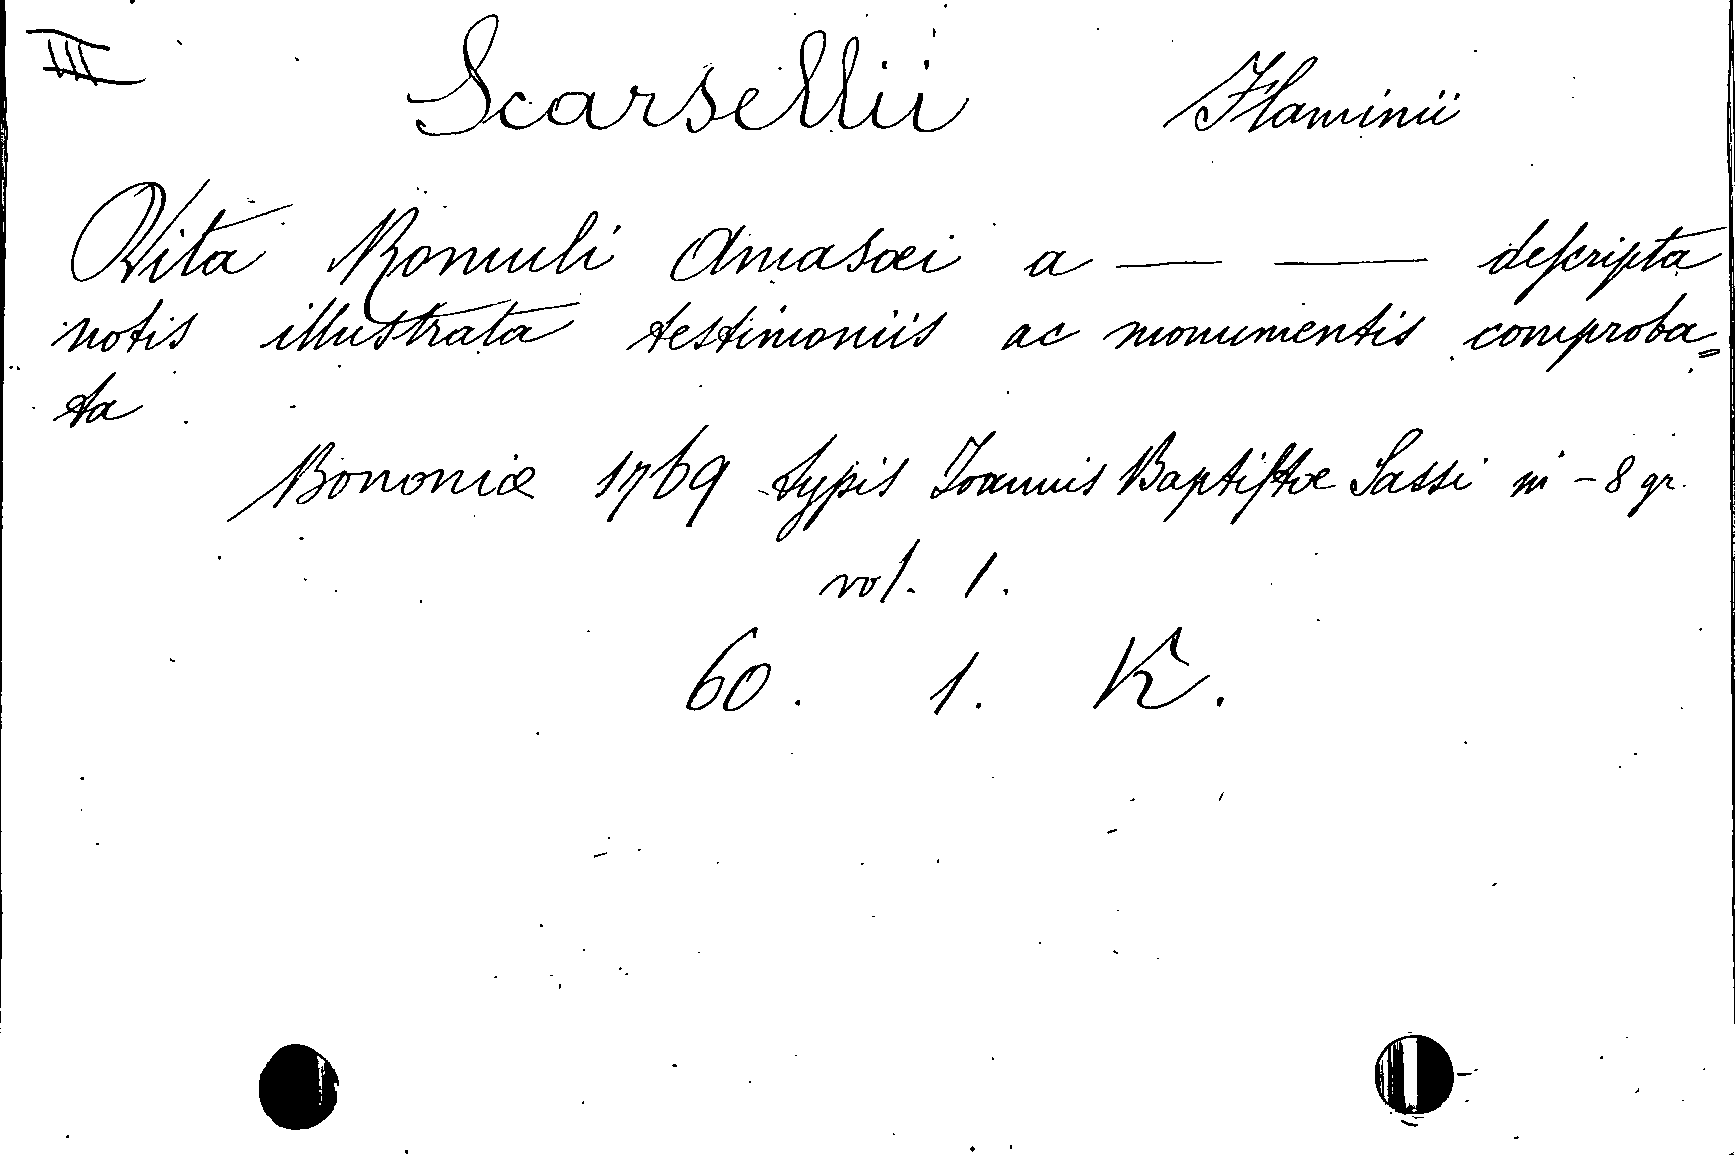 III Scarsellii Flaminii
Vita Romuli Amasæi a — — descripta
notis illustrata testimoniis ac monumentis comproba=
ta
Bononiæ 1769 typis Ioannis Baptistæ Sassi in - 8 gr.
vol. 1.
60. 1. K.